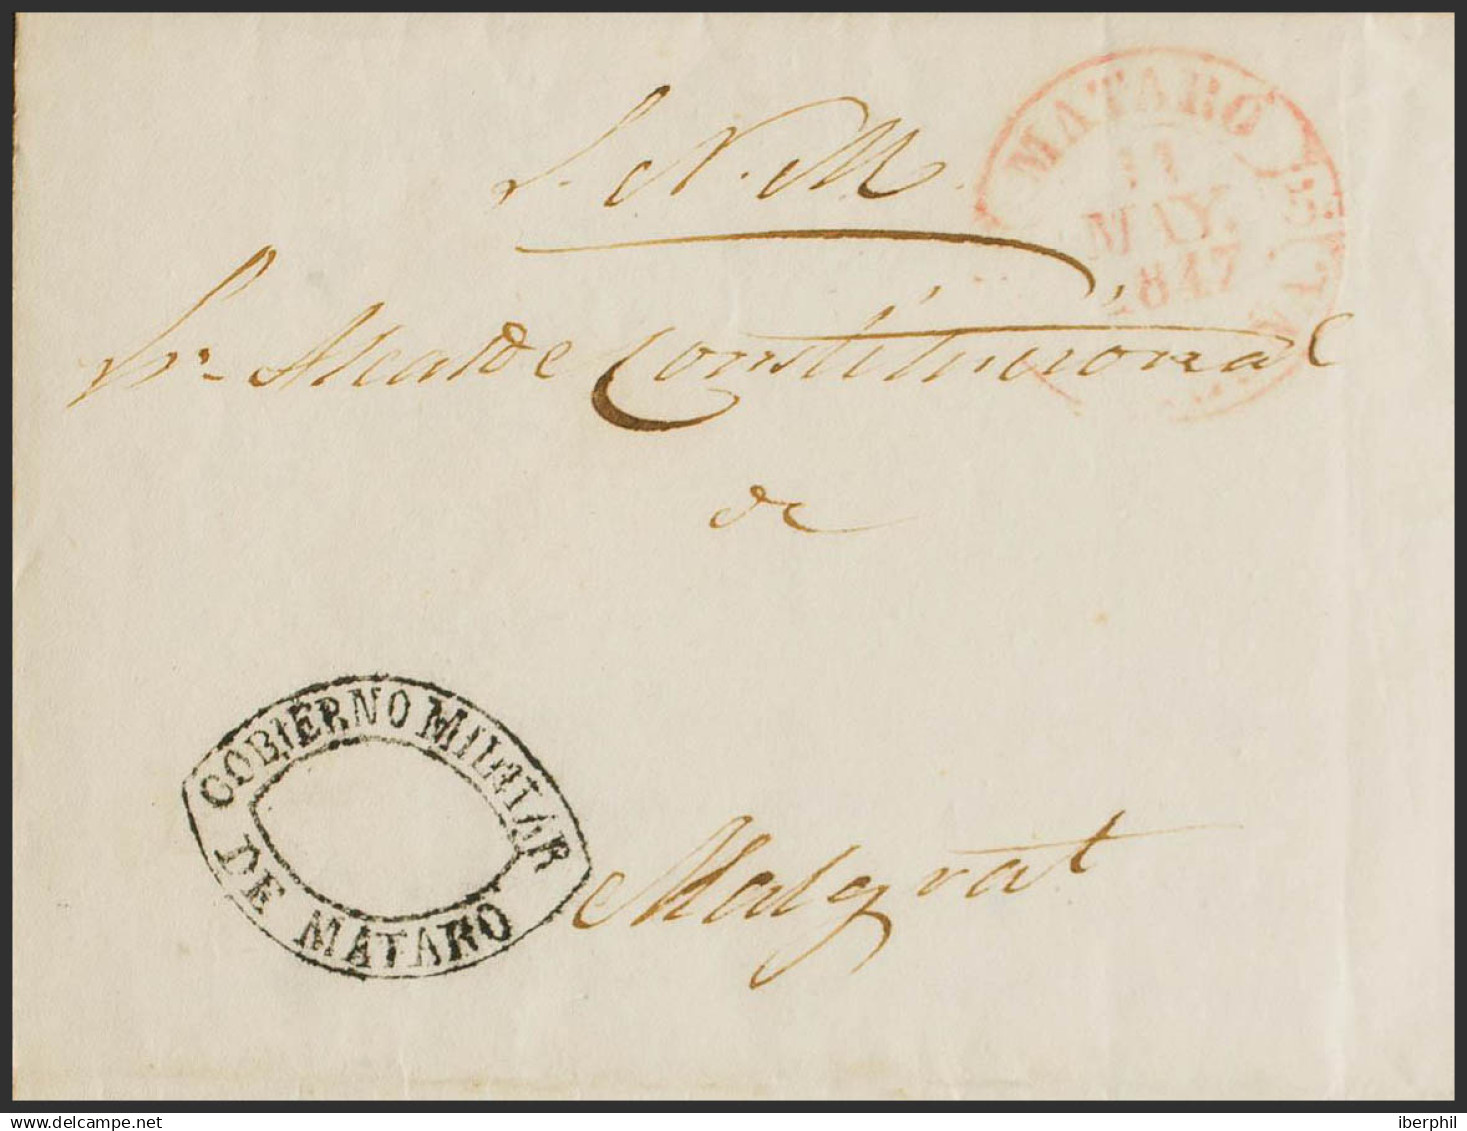 S. N. M.
MATARÓ
11
MAY.
1847
Sr. Alcalde Constitucional
de
GOBIERNO MILITAR
DE MATARO
Malgrat
delcampe.net
iberphil